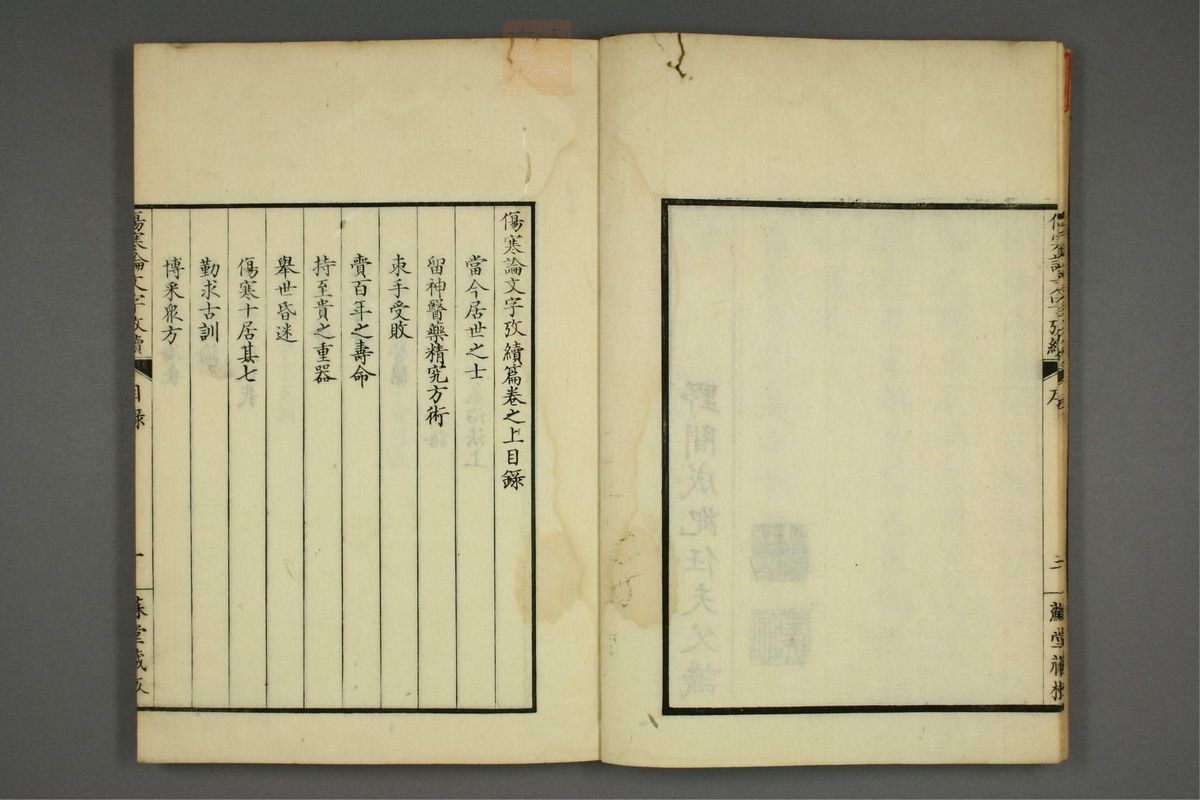 序
三
傷寒論文字攷續篇卷之上目錄
當今居世之士
留神醫藥精究方術
束手受敗
賫百年之壽命
持至貴之重器
舉世昏迷
傷寒十居其七
勤求古訓
博釆眾方
傷寒論文字攷續
目錄
一
堂藏版